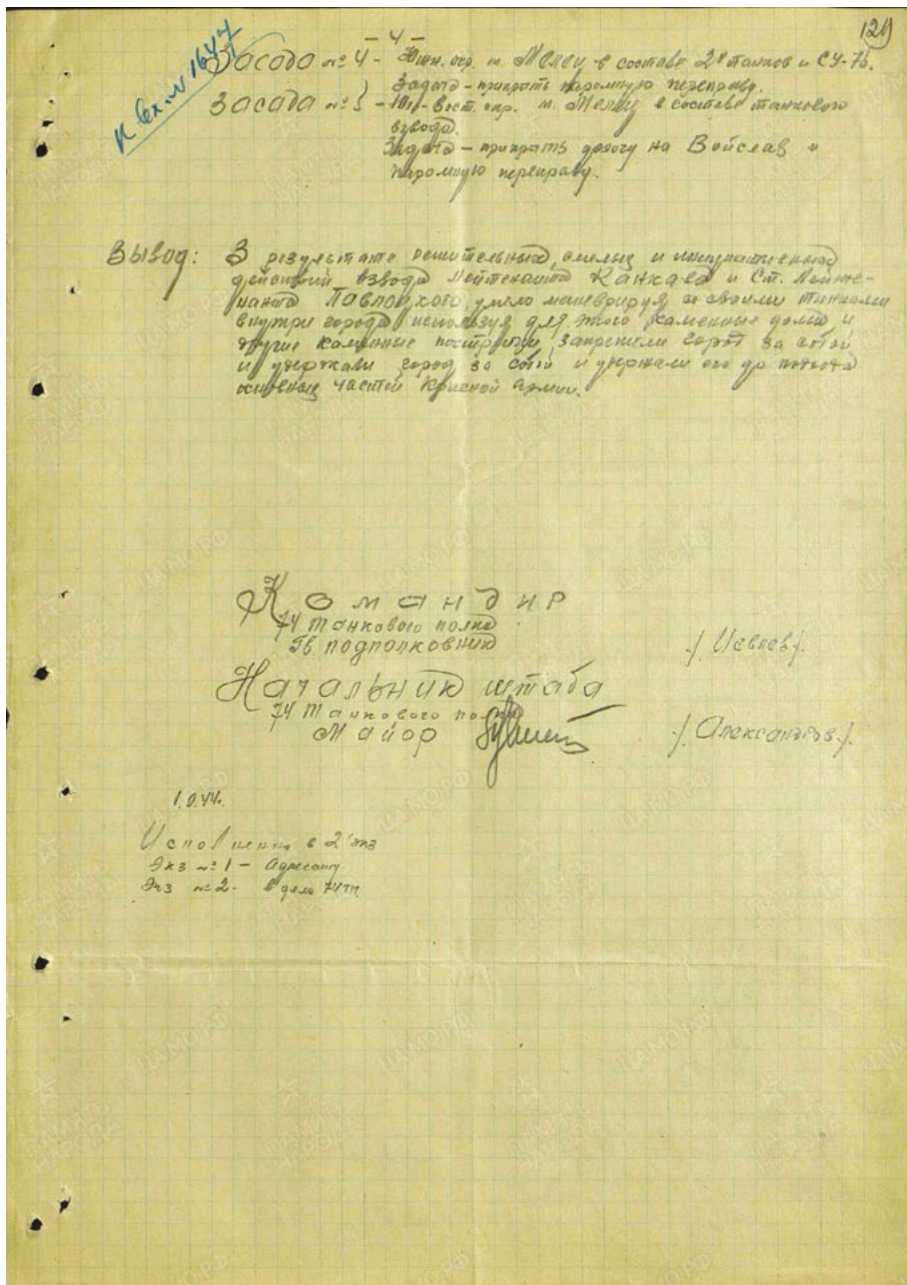 - 4 -
129
к Вх. № 1647
Засада № 4 - Южн. окр. м. Мелец в составе 2х танков и СУ-76.
Задача - прикрыть паромную переправу.
Засада № 5 - Юго-Вост. окр. м. Мелец в составе танкового
взвода.
Задача - прикрыть дорогу на Войслав и
паромную переправу.
Вывод: В результате решительных, смелых и инициативных
действий взвода Лейтенанта Канкаева и Ст. Лейте-
нанта Павловского, умело маневрируя со своими танками
внутри города используя для этого каменные дома и
другие каменные постройки, закрепили город за собой
и удержали город за собой и удержали его до подхода
основных частей Красной армии.
Командир
74 танкового полка
Гв. подполковник
/ Иевлев /.
Начальник штаба
74 танкового полка
Майор
/. Александров /.
Исполнено в 2 экз
Экз № 1 - Адресату
Экз № 2 - в дело 74тп
ПАМЯТЬ НАРОДА
ЦАМО.РФ